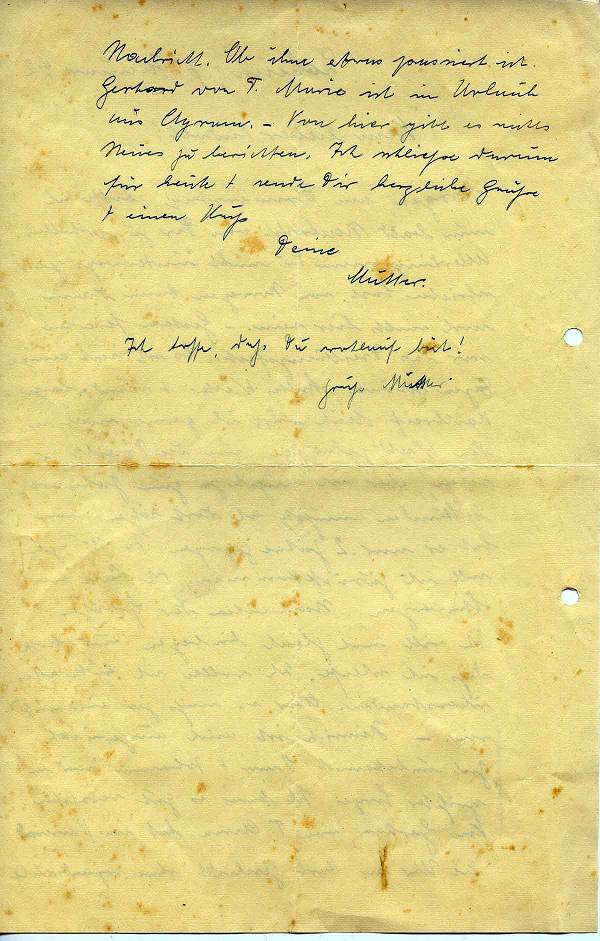 Nachricht. Ob ihm etwas passiert ist.
Gerhard von T. Marie ist in Urlaub
aus . – Von hier gibt es nichts
Neues zu berichten. Ich schließe darum
für heute + sende Dir herzliche Grüße
+ einen Kuß
Deine
Mutter.
Ich hoffe, daß Du wohlauf bist!
Gruß Mutter